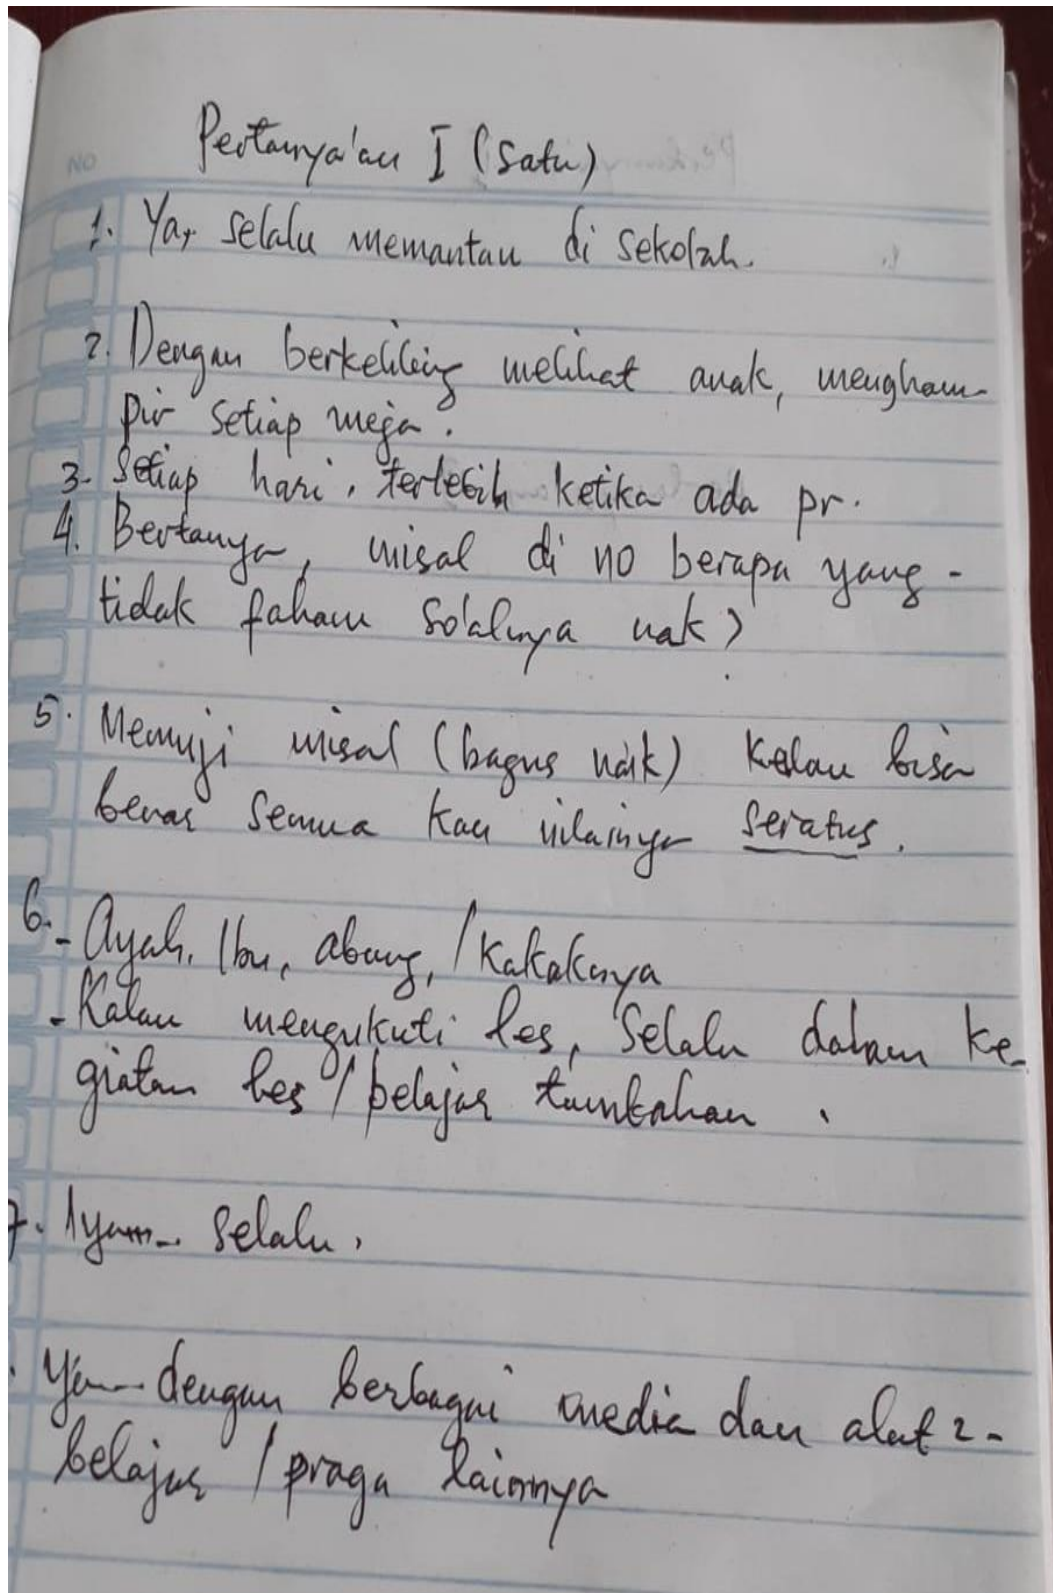 Pertanya'an I (Satu)
1. Ya, selalu memantau di sekolah.
2. Dengan berkeliling melihat anak, mengham-
pir setiap meja.
3. Setiap hari, terlebih ketika ada pr.
4. Bertanya, misal di no berapa yang -
tidak faham so'alnya nak?
5. Memuji misal (bagus nak) kalau bisa
benar semua kan nilainya seratus.
6. - Ayah, Ibu, abang, / kakaknya
- Kalau mengikuti les, selalu dalam ke-
giatan les / belajar tambahan.
7. Iya... selalu.
. Ya... dengan berbagai media dan alat2 -
belajar / praga lainnya